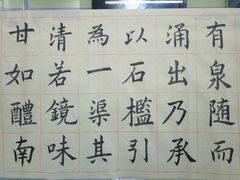 有泉随而
涌出乃承
以石檻引
為一渠其
清若鏡味
甘如醴南